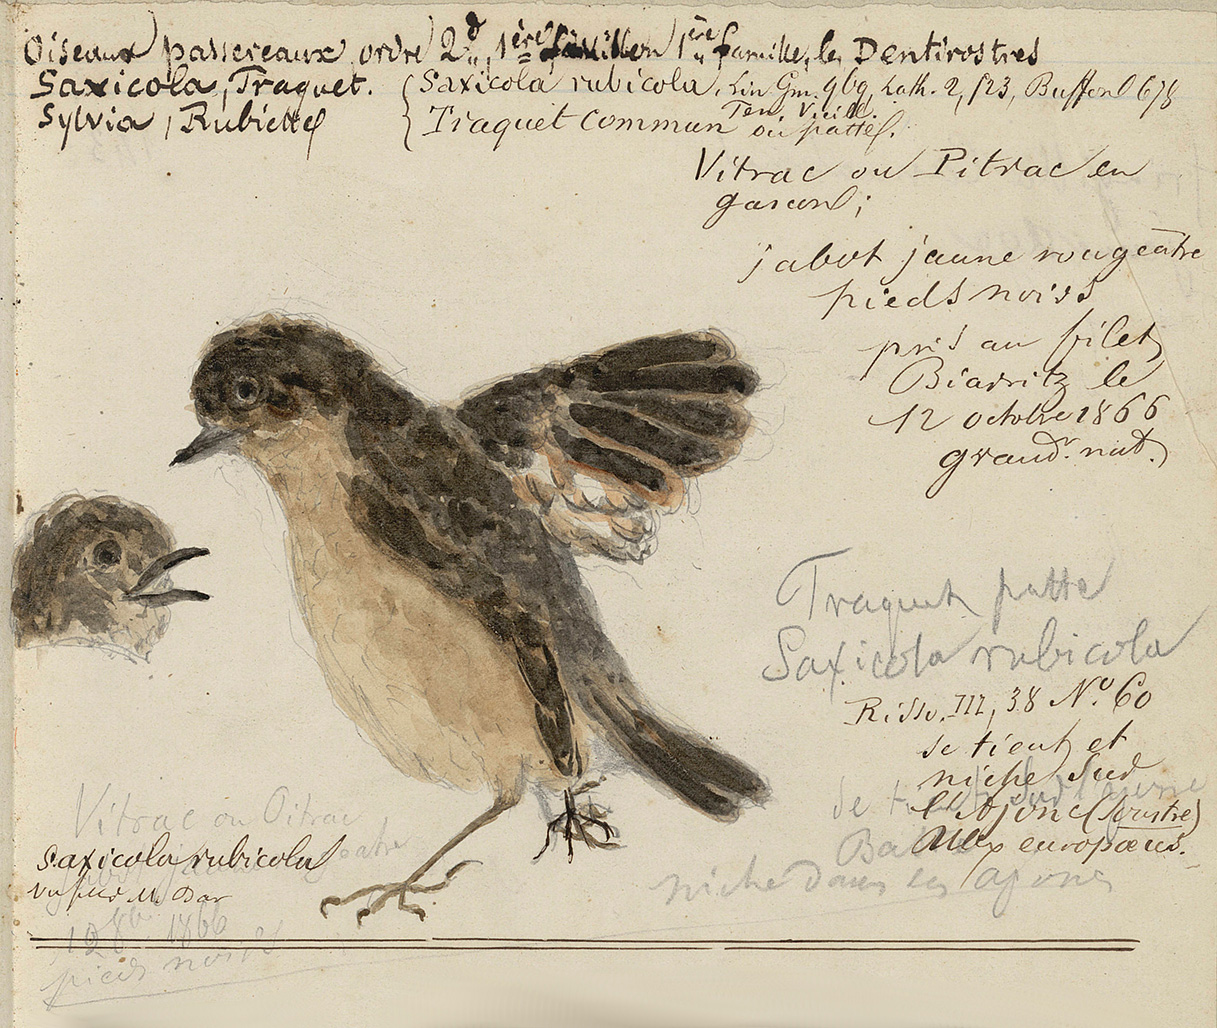 Oiseaux passereaux, ordre 2d,, 1ère 1ère famille, les Dentirostres
Saxicola, Traquet. { Saxicola rubicola, Lin Gm. 969, Lath. 2, 523, Buffon 678
Tem. Vieill.
Sylvia, Rubiette { Traquet commun ou pattes.
Vitrac ou Pitrac en
gascon;
jabot jaune rougeâtre
pieds noirs
pris au filet
Biarritz le
12 octobre 1866
grandr. nat.
Traquet patte
Saxicola rubicola
Risso. III, 38 No. 60
se tient et
niche sur
l'Ajonc (
Ulex europæus.
se tient sur l'ajonc
niche dans les ajoncs
Vitrac ou Oitrac
saxicola rubicola
vu par M. Dar
12 8b 1866
pieds noirs